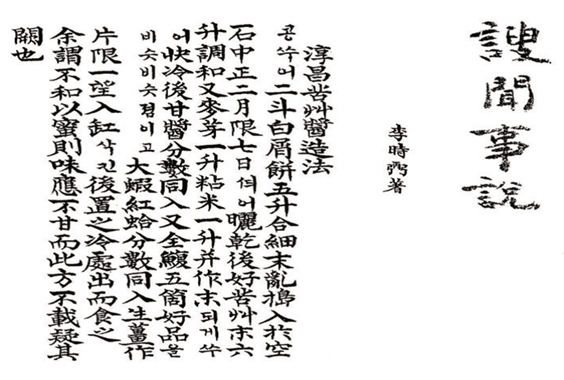 謏聞事說
李時弼著
淳昌苦艸醬造法
콩쑤어二斗白屑餠五升合細末亂搗入於空
石中正二月限七日曬乾後好苦艸末六
升調和又麥芽一升粘米一升幷作末되게쑤
어快冷後甘醬分數同入又全鰒五箇好品을
비슷비슷졈이고大蝦紅蛤分數同入生薑作
片限一望入缸삭킨後置之冷處出而食之
余謂不和以蜜則味應不甘而此方不載疑其
闕也